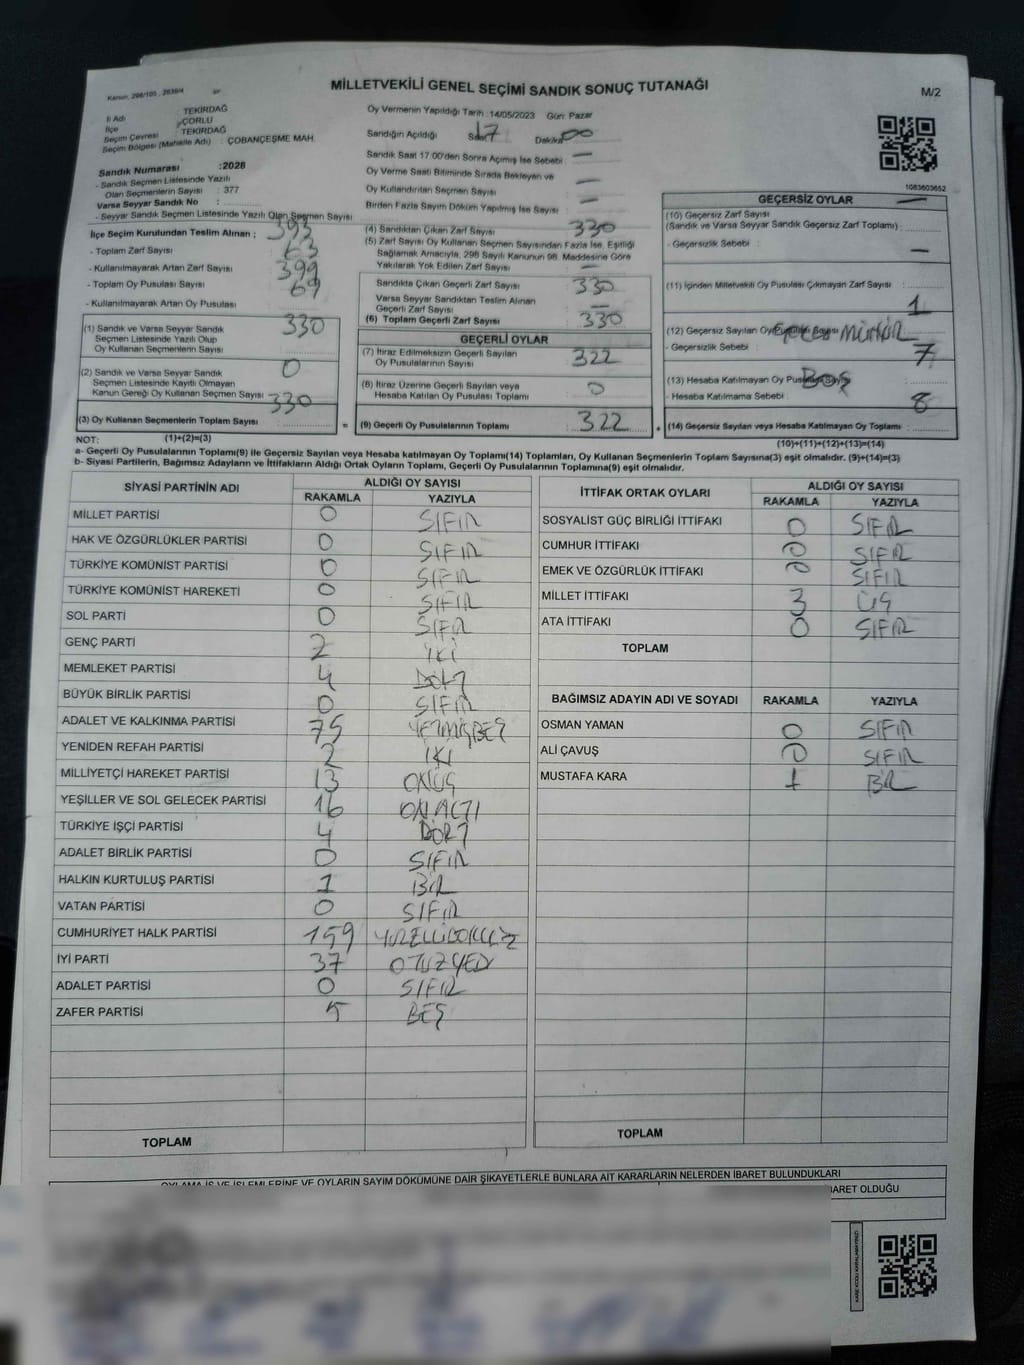 MİLLETVEKİLİ GENEL SEÇİMİ SANDIK SONUÇ TUTANAĞI
M/2
İl Adı : TEKİRDAĞ
İlçe : ÇORLU
Seçim Çevresi : TEKİRDAĞ
Seçim Bölgesi (Mahalle Adı) : ÇOBANÇEŞME MAH.
Sandık Numarası :2028
- Sandık Seçmen Listesinde Yazılı
Olan Seçmenlerin Sayısı : 377
Varsa Seyyar Sandık No :
- Seyyar Sandık Seçmen Listesinde Yazılı Olan Seçmen Sayısı
Oy Vermenin Yapıldığı Tarih : 14/05/2023 Gün: Pazar
Sandığın Açıldığı Saat 17 Dakika 00
Sandık Saat 17:00'den Sonra Açılmış İse Sebebi : —
Oy Verme Saati Bitiminde Sırada Bekleyen ve
Oy Kullandırılan Seçmen Sayısı : —
Birden Fazla Sayım Döküm Yapılmış İse Sayısı : —
1083603652
İlçe Seçim Kurulundan Teslim Alınan ;
- Toplam Zarf Sayısı 393
- Kullanılmayarak Artan Zarf Sayısı 63
- Toplam Oy Pusulası Sayısı 399
- Kullanılmayarak Artan Oy Pusulası 69
(1) Sandık ve Varsa Seyyar Sandık
Seçmen Listesinde Yazılı Olup
Oy Kullanan Seçmenlerin Sayısı 330
(2) Sandık ve Varsa Seyyar Sandık
Seçmen Listesinde Kayıtlı Olmayan
Kanun Gereği Oy Kullanan Seçmen Sayısı 0
(3) Oy Kullanan Seçmenlerin Toplam Sayısı : 330
(4) Sandıktan Çıkan Zarf Sayısı 330
(5) Zarf Sayısı Oy Kullanan Seçmen Sayısından Fazla İse, Eşitliği
Sağlamak Amacıyla, 298 Sayılı Kanunun 98. Maddesine Göre
Yakılarak Yok Edilen Zarf Sayısı —
Sandıkta Çıkan Geçerli Zarf Sayısı : 330
Varsa Seyyar Sandıktan Teslim Alınan
Geçerli Zarf Sayısı —
(6) Toplam Geçerli Zarf Sayısı : 330
GEÇERLİ OYLAR
(7) İtiraz Edilmeksizin Geçerli Sayılan
Oy Pusulalarının Sayısı 322
(8) İtiraz Üzerine Geçerli Sayılan veya
Hesaba Katılan Oy Pusulası Toplamı 0
(9) Geçerli Oy Pusulalarının Toplamı : 322
GEÇERSİZ OYLAR
(10) Geçersiz Zarf Sayısı —
(Sandık ve Varsa Seyyar Sandık Geçersiz Zarf Toplamı) :
- Geçersizlik Sebebi : —
(11) İçinden Milletvekili Oy Pusulası Çıkmayan Zarf Sayısı :
(12) Geçersiz Sayılan Oy Pusulası Sayısı 1
- Geçersizlik Sebebi : mühür
(13) Hesaba Katılmayan Oy Pusulası Sayısı 7
- Hesaba Katılmama Sebebi : BOŞ
(14) Geçersiz Sayılan veya Hesaba Katılmayan Oy Toplamı : 8
NOT: (1)+(2)=(3)
(10)+(11)+(12)+(13)=(14)
a- Geçerli Oy Pusulalarının Toplamı(9) ile Geçersiz Sayılan veya Hesaba katılmayan Oy Toplamı(14) Toplamları, Oy Kullanan Seçmenlerin Toplam Sayısına(3) eşit olmalıdır. (9)+(14)=(3)
b- Siyasi Partilerin, Bağımsız Adayların ve İttifakların Aldığı Ortak Oyların Toplamı, Geçerli Oy Pusulalarının Toplamına(9) eşit olmalıdır.
SİYASİ PARTİNİN ADI ALDIĞI OY SAYISI
RAKAMLA YAZIYLA
MİLLET PARTİSİ 0 SIFIR
HAK VE ÖZGÜRLÜKLER PARTİSİ 0 SIFIR
TÜRKİYE KOMÜNİST PARTİSİ 0 SIFIR
TÜRKİYE KOMÜNİST HAREKETİ 0 SIFIR
SOL PARTİ 0 SIFIR
GENÇ PARTİ 2 İKİ
MEMLEKET PARTİSİ 4 DÖRT
BÜYÜK BİRLİK PARTİSİ 0 SIFIR
ADALET VE KALKINMA PARTİSİ 75 YETMİŞBEŞ
YENİDEN REFAH PARTİSİ 2 İKİ
MİLLİYETÇİ HAREKET PARTİSİ 13 ONÜÇ
YEŞİLLER VE SOL GELECEK PARTİSİ 16 ONALTI
TÜRKİYE İŞÇİ PARTİSİ 4 DÖRT
ADALET BİRLİK PARTİSİ 0 SIFIR
HALKIN KURTULUŞ PARTİSİ 1 BİR
VATAN PARTİSİ 0 SIFIR
CUMHURİYET HALK PARTİSİ 159 YÜZELLİDOKUZ
İYİ PARTİ 37 OTUZYEDİ
ADALET PARTİSİ 0 SIFIR
ZAFER PARTİSİ 5 BEŞ
TOPLAM
İTTİFAK ORTAK OYLARI ALDIĞI OY SAYISI
RAKAMLA YAZIYLA
SOSYALİST GÜÇ BİRLİĞİ İTTİFAKI 0 SIFIR
CUMHUR İTTİFAKI 0 SIFIR
EMEK VE ÖZGÜRLÜK İTTİFAKI 0 SIFIR
MİLLET İTTİFAKI 3 ÜÇ
ATA İTTİFAKI 0 SIFIR
TOPLAM
BAĞIMSIZ ADAYIN ADI VE SOYADI RAKAMLA YAZIYLA
OSMAN YAMAN 0 SIFIR
ALİ ÇAVUŞ 0 SIFIR
MUSTAFA KARA 1 BİR
TOPLAM
OYLAMA İŞ VE İŞLEMLERİNE VE OYLARIN SAYIM DÖKÜMÜNE DAİR ŞİKAYETLERLE BUNLARA AİT KARARLARIN NELERDEN İBARET BULUNDUKLARI
BARET OLDUĞU